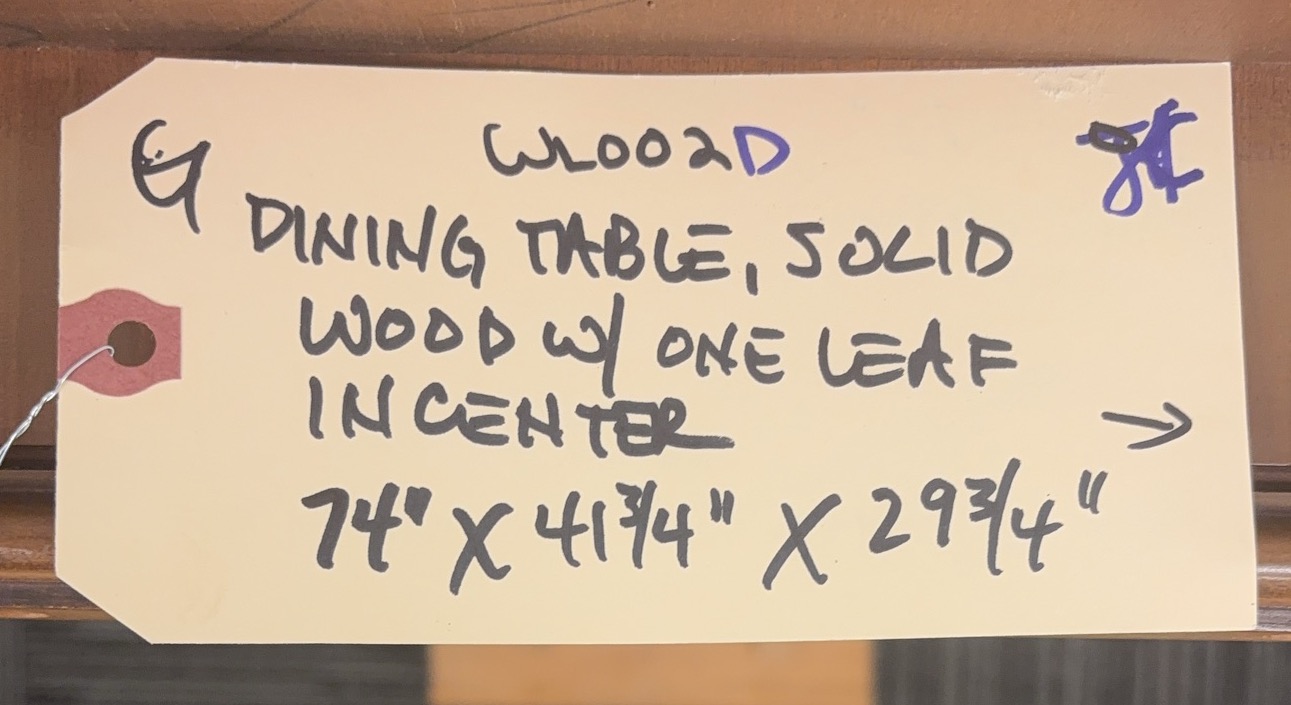 WL002D
DINING TABLE, SOLID
WOOD W/ ONE LEAF
IN CENTER
→
74" X 41 3/4" X 29 3/4"